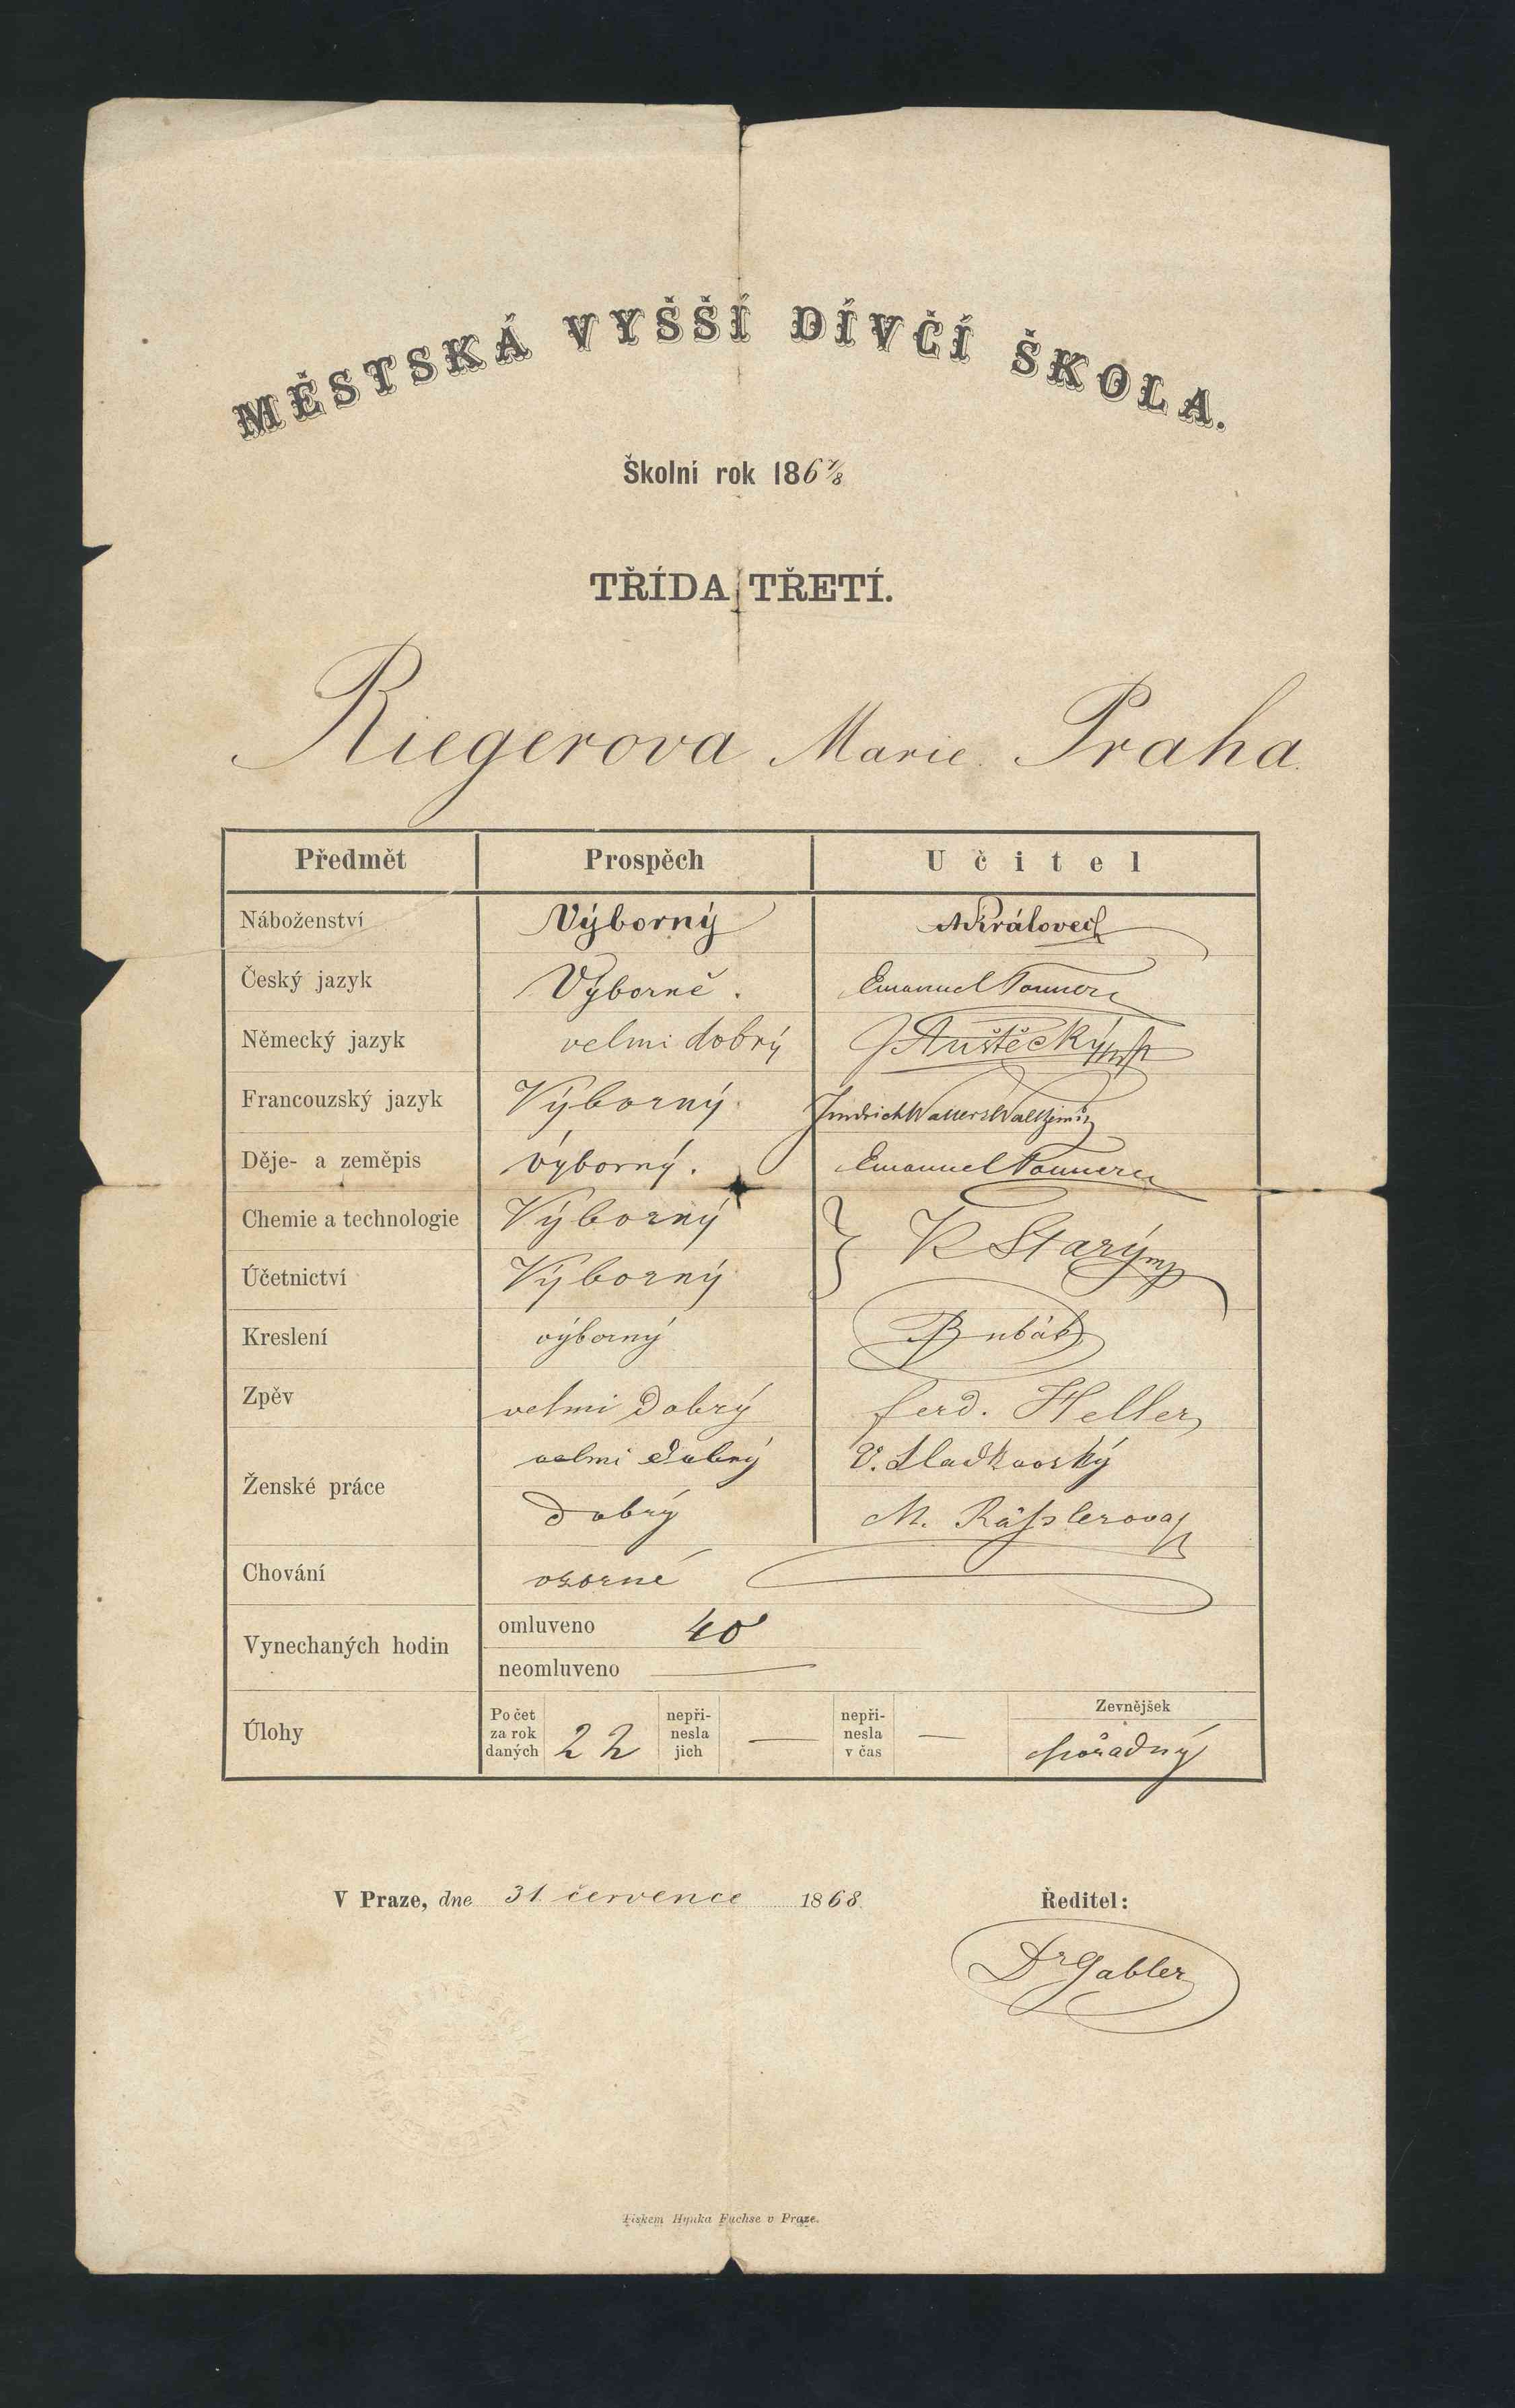 MĚSTSKÁ VYŠŠÍ DÍVČÍ ŠKOLA.
Školní rok 186 7/8
TŘÍDA TŘETÍ.
Riegerova Marie. Praha.
Předmět Prospěch Učitel
Náboženství Výborný
Český jazyk Výborně. Emanuel Tonner
Německý jazyk velmi dobrý
Francouzský jazyk Výborný Jindrich
Děje- a zeměpis výborný. Emanuel Tonner
Chemie a technologie Výborný
} K Starý mp
Účetnictví Výborný
Kreslení výborný Bubák
Zpěv velmi dobrý ferd. Heller
velmi dobrý V. Sladkovský
Ženské práce
dobrý M. Räßlerova
Chování vzorné
omluveno 40
Vynechaných hodin
neomluveno —
Úlohy Počet za rok daných 22 nepři- nesla jich — nepři- nesla v čas — Zevnějšek pořadný
V Praze, dne 31. července 1868. Ředitel:
Dr Gabler
Tiskem Hynka Fuchse v Praze.